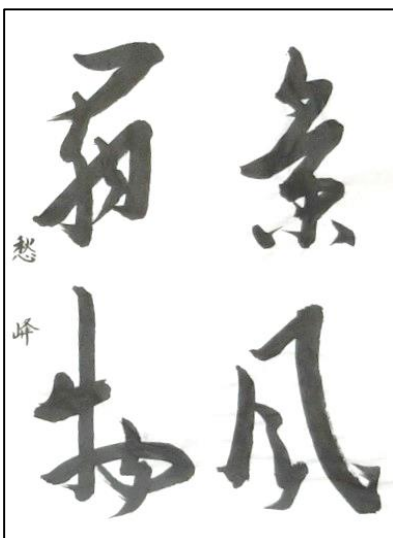 景風
扇物
愁峰